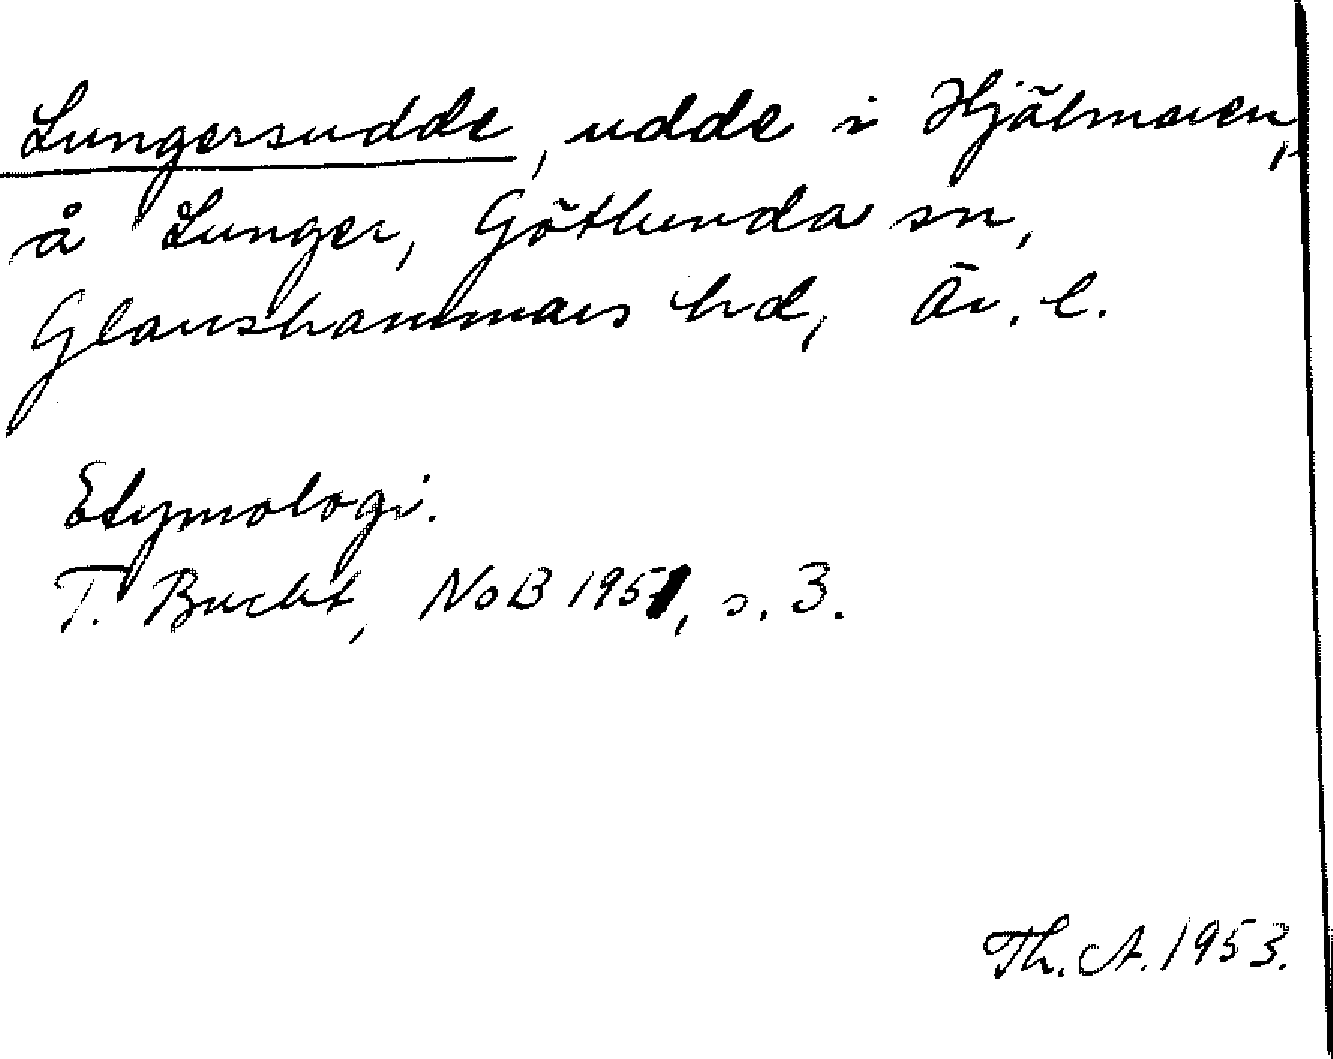 Lungersudde, udde i Hjälmaren,
å Lunger, Götlunda sn,
Glanshammars hd, Är. l.
Etymologi.
T. Bucht, NoB 1951, s. 3.
Th. A. 1953.